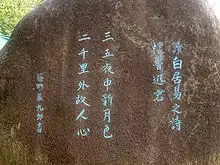 白居易之詩
君
三五夜中新月色
二千里外故人心
九郎書